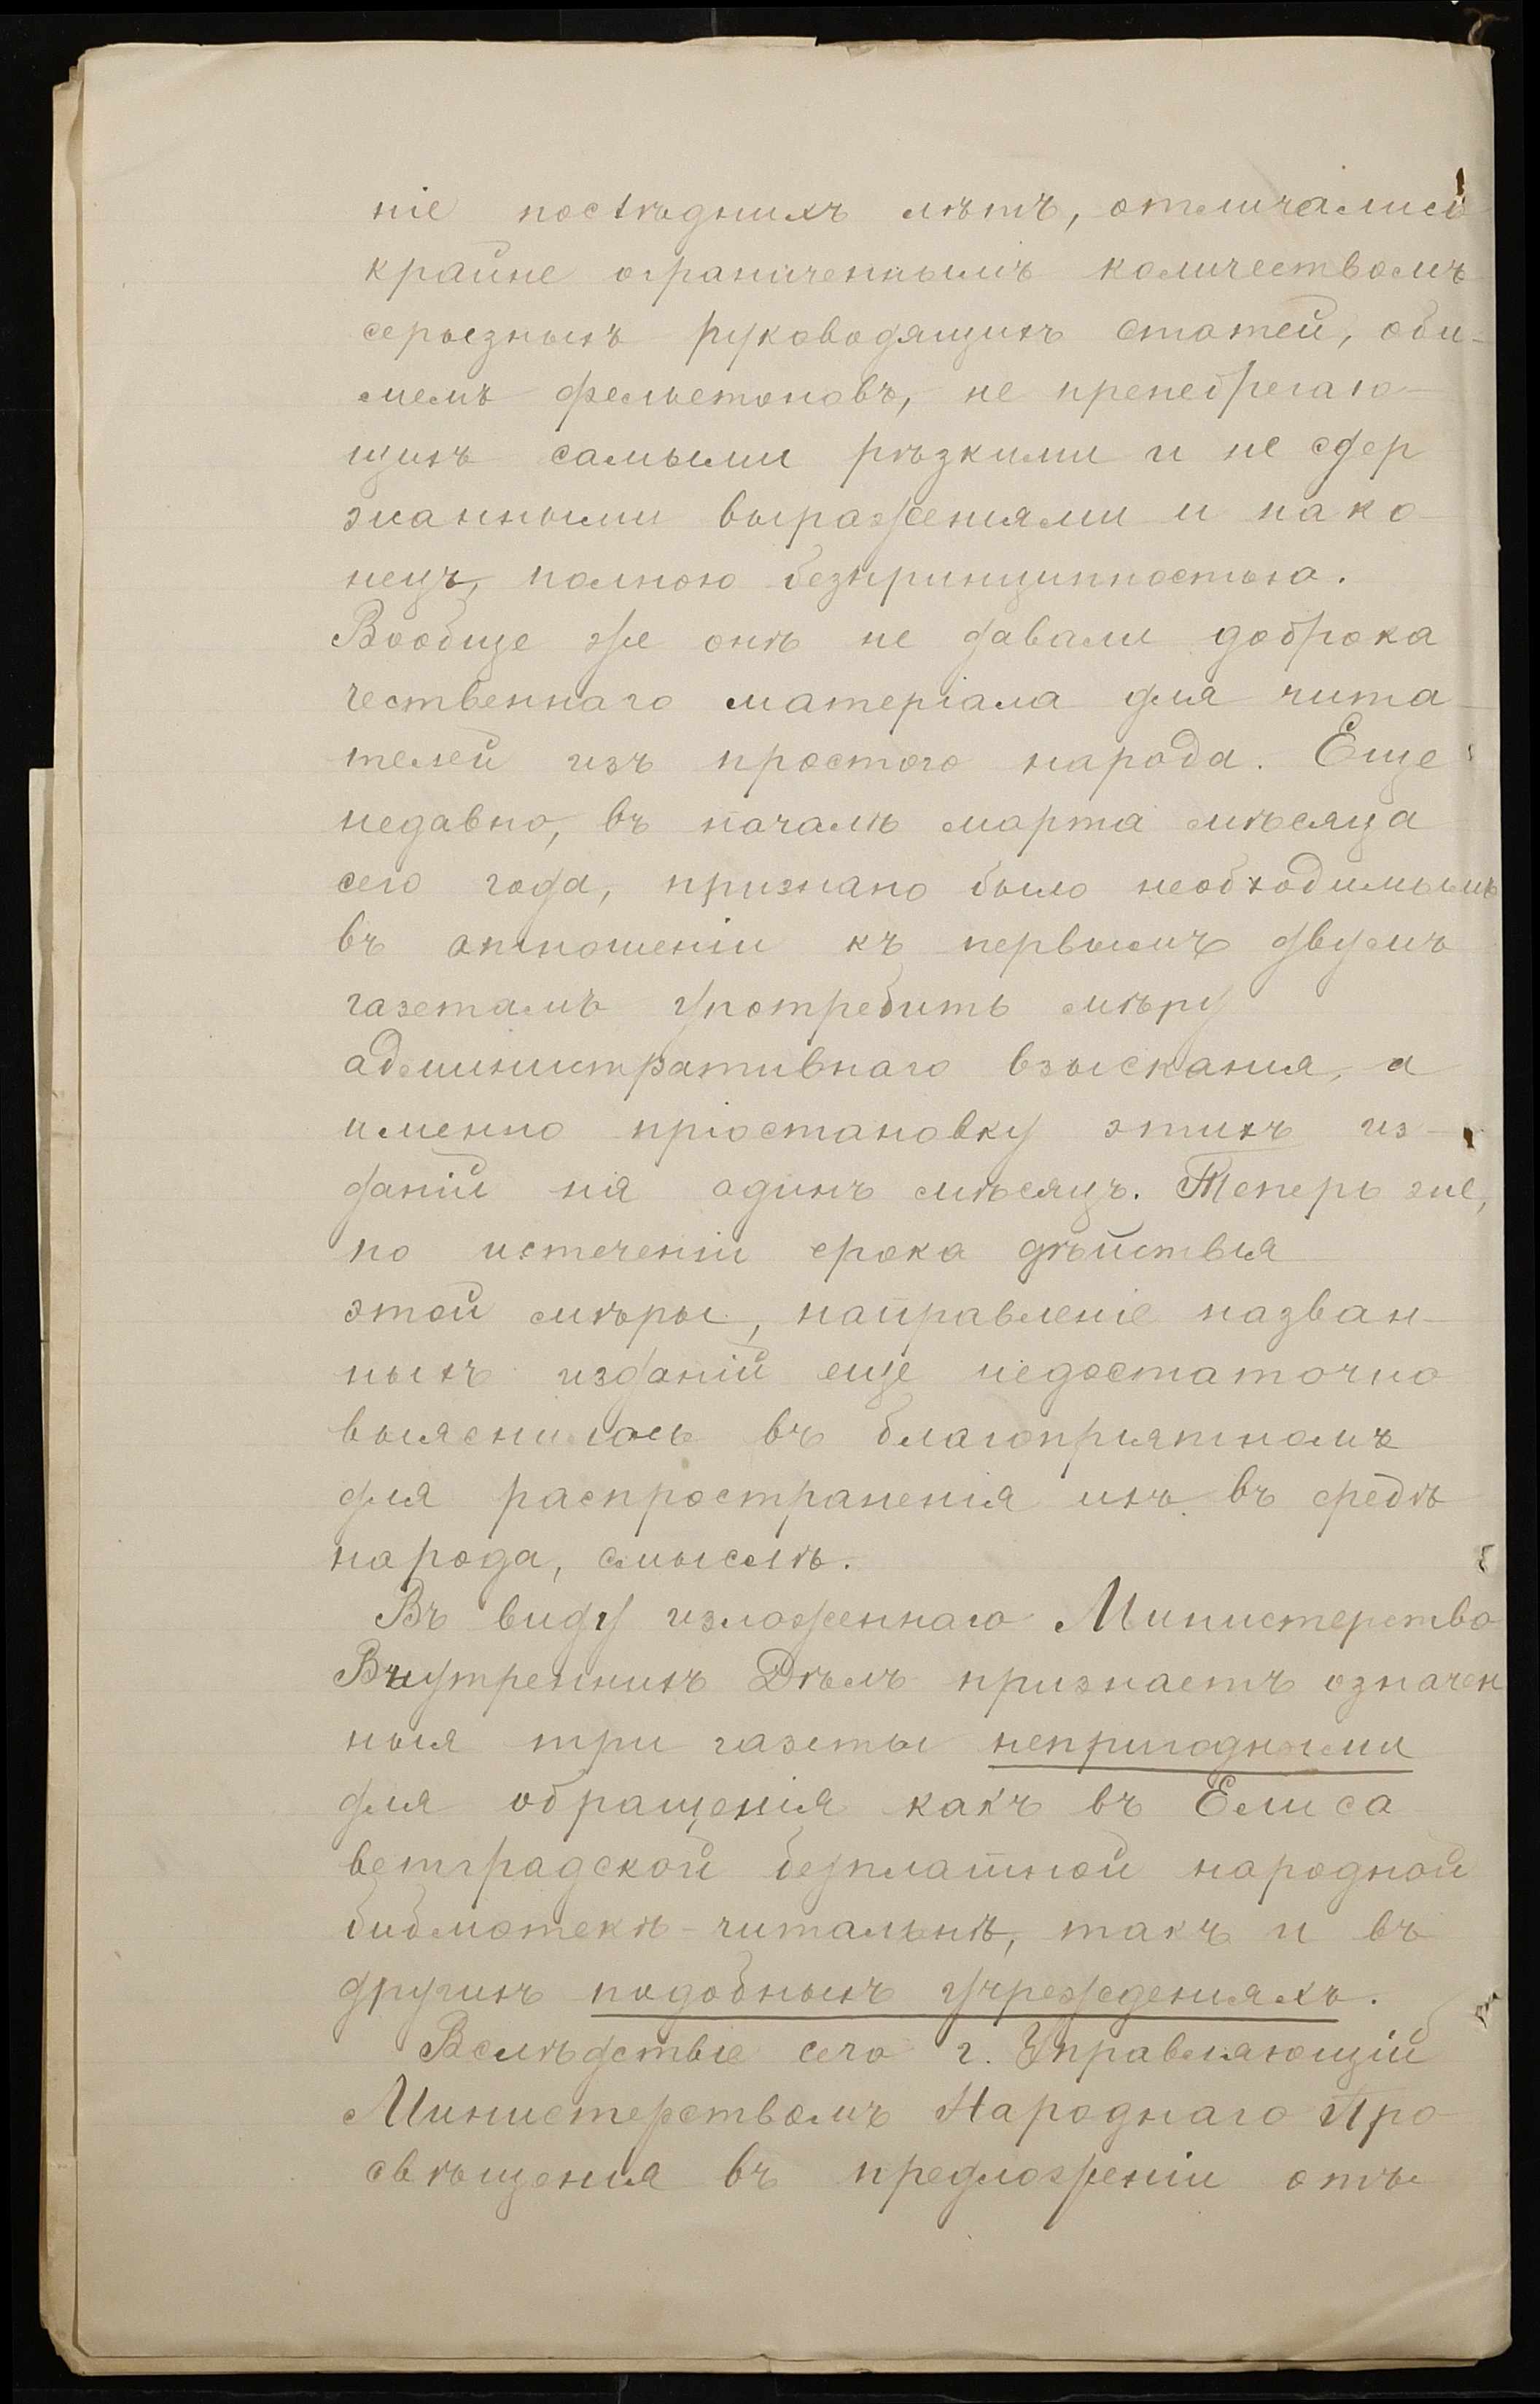 ніе послѣднихъ лѣтъ, отличались
крайне ограниченнымъ количествомъ
серьезныхъ руководящихъ статей, оби-
лiемъ фельетоновъ, не пренебрегаю-
щихъ самыми рѣзкими и не сдер
жанными выраженіями и нако
нецъ, полною безпринципностью.
Вообще же онѣ не давали доброка
чественнаго матеріала для чита
телей изъ простого народа. Еще
недавно, въ началѣ марта мѣсяца
сего года, признано было необходимымъ
въ отношеніи къ первымъ двумъ
газетамъ употребить мѣру
административнаго взысканія, а
именно пріостановку этихъ из-
даній на одинъ мѣсяцъ. Теперь же,
по истеченіи срока дѣйствія
этой мѣры, направленіе назван-
ныхъ изданій еще недостаточно
выяснилось въ благопріятномъ
для распространенія ихъ въ средѣ
народа, смыслѣ.
Въ виду изложеннаго Министерство
Внутреннихъ Дѣлъ признаетъ означен
ныя три газеты непригодными
для обращенія какъ въ Елиса
ветградской безплатной народной
библіотекѣ-читальнѣ, такъ и въ
другихъ подобныхъ учрежденіяхъ.
Вслѣдствіе сего г. Управляющій
Министерствомъ Народнаго Про
свѣщенія въ предложеніи отъ